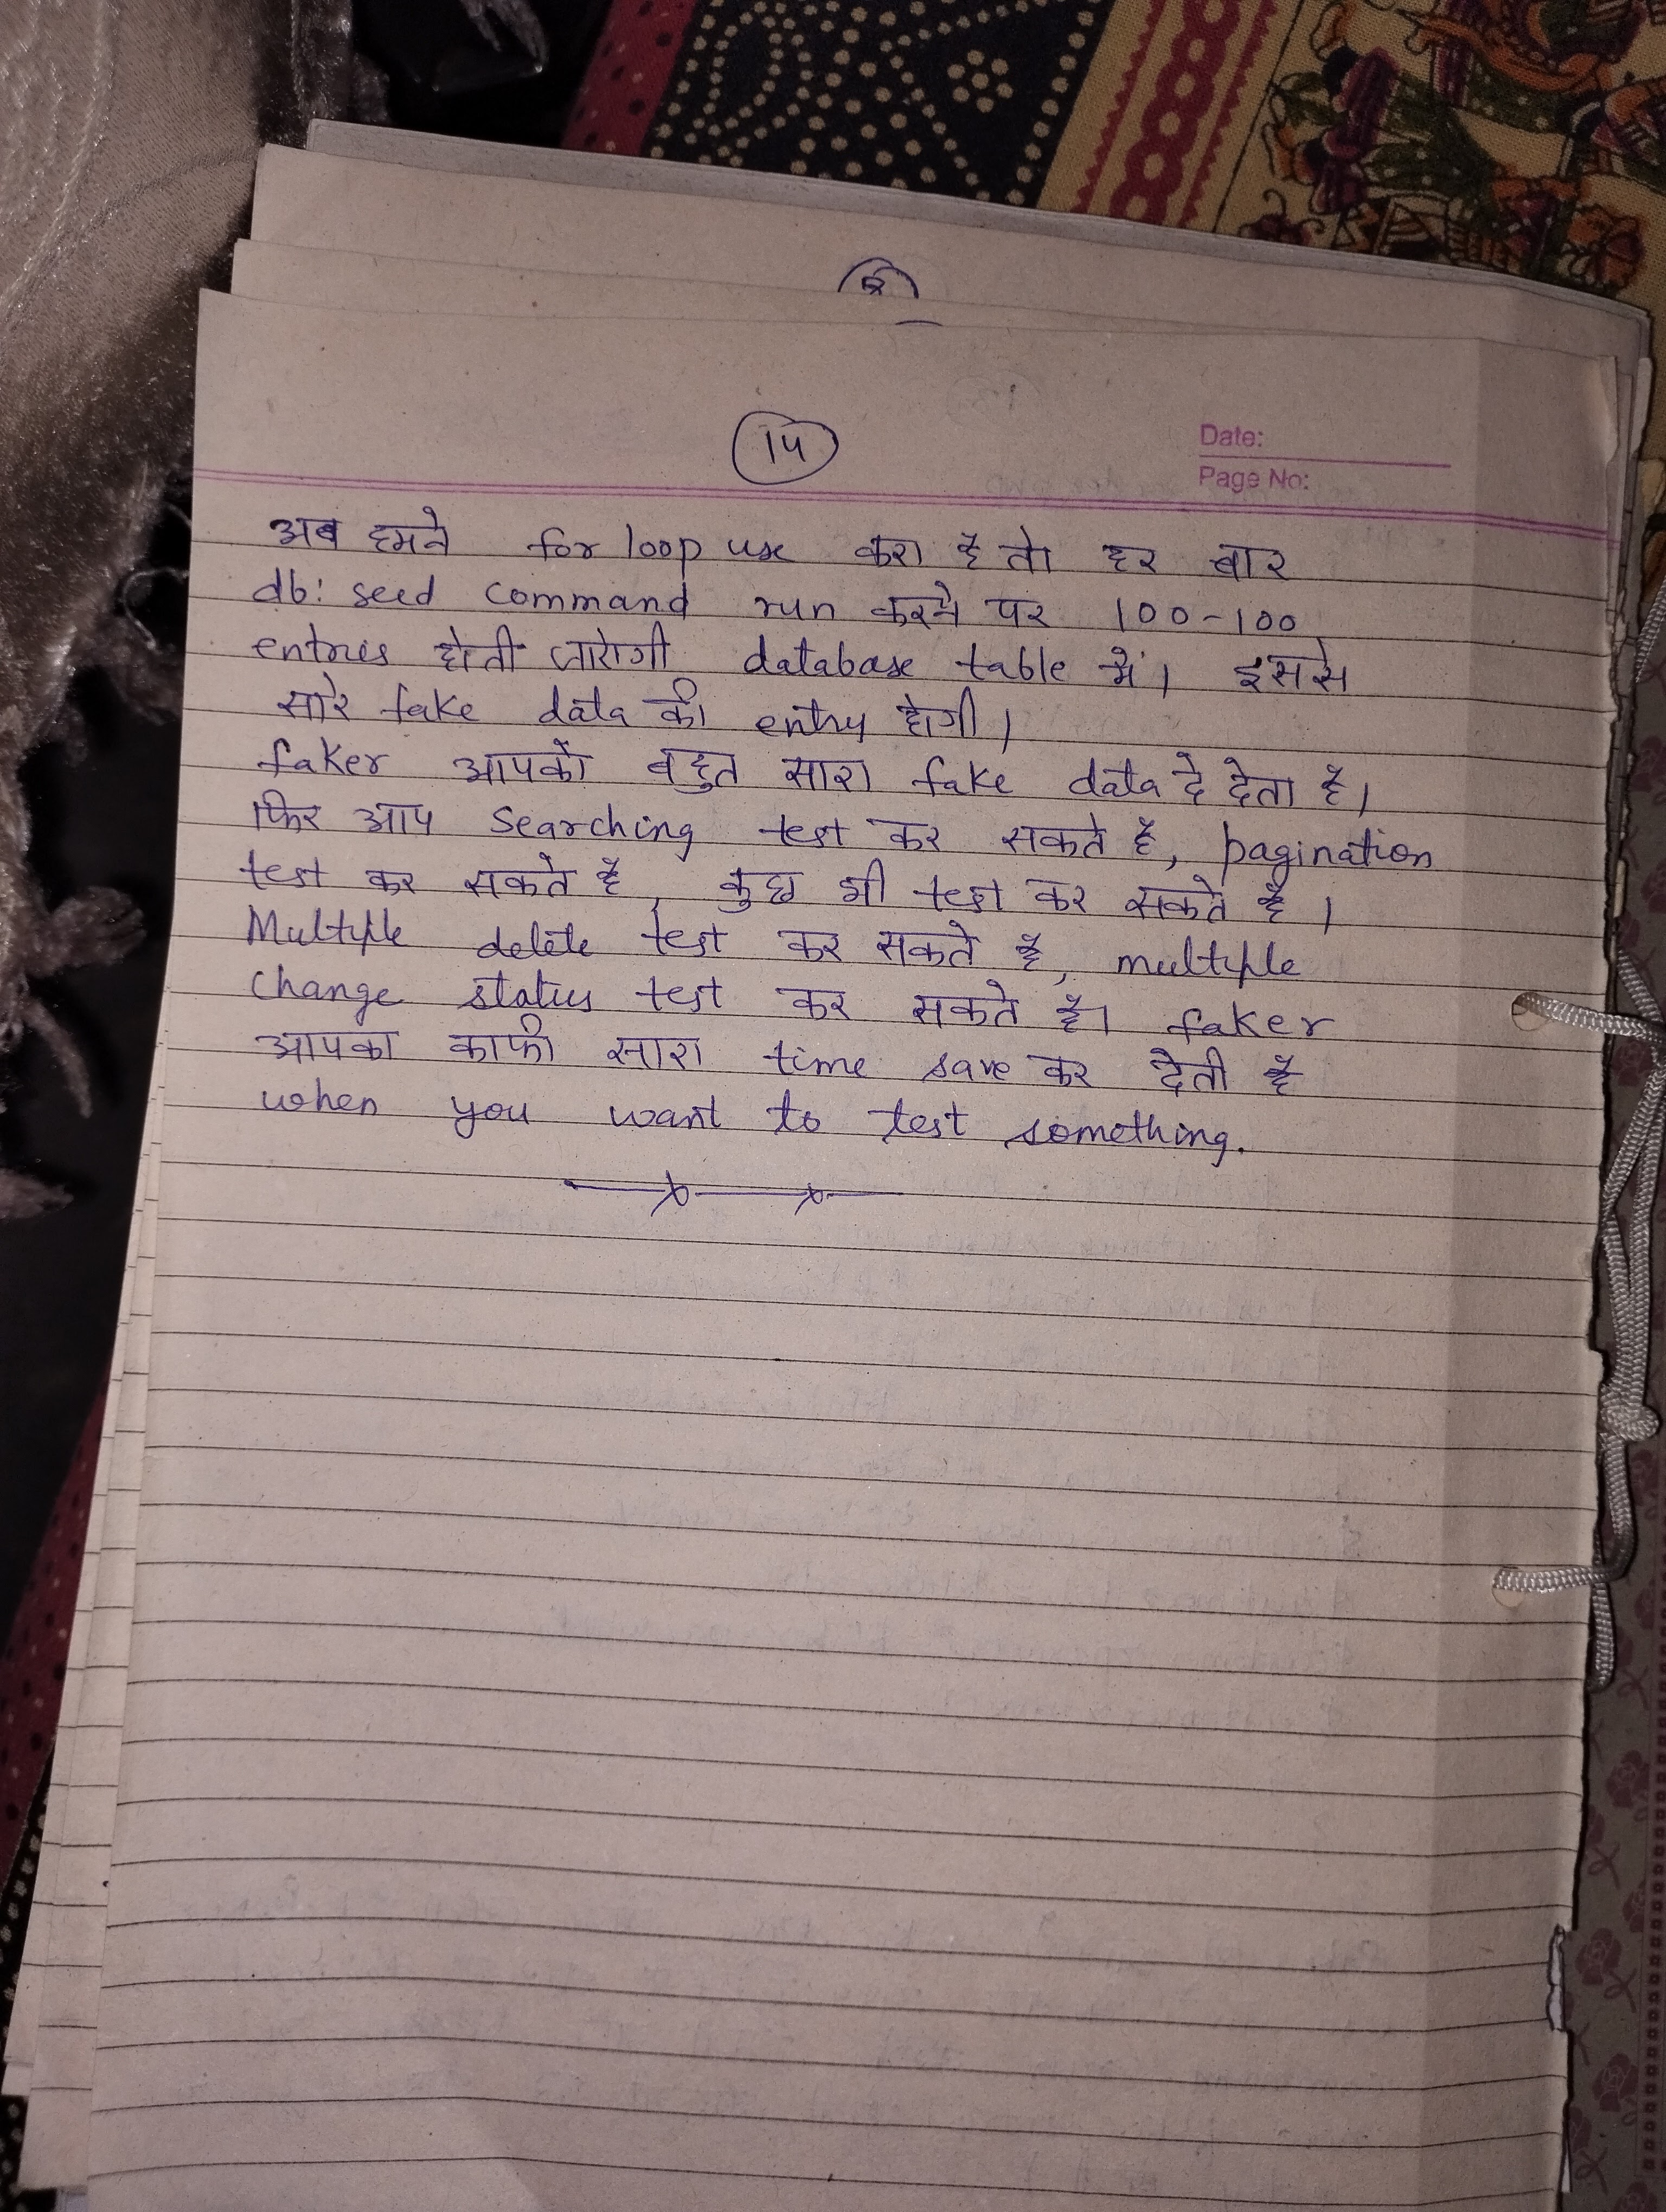 14
Date:
Page No:
अब हमने for loop use करा है तो हर बार
db: seed command run करने पर 100-100
entries होती जाएगी database table में। इससे
सारे fake data की entry होगी।
faker आपको बहुत सारा fake data दे देता है।
फिर आप searching test कर सकते है, pagination
test कर सकते है, कुछ भी test कर सकते है।
Multiple delete test कर सकते है, multiple
change status test कर सकते है। faker
आपका काफी सारा time save कर देती है
when you want to test something.